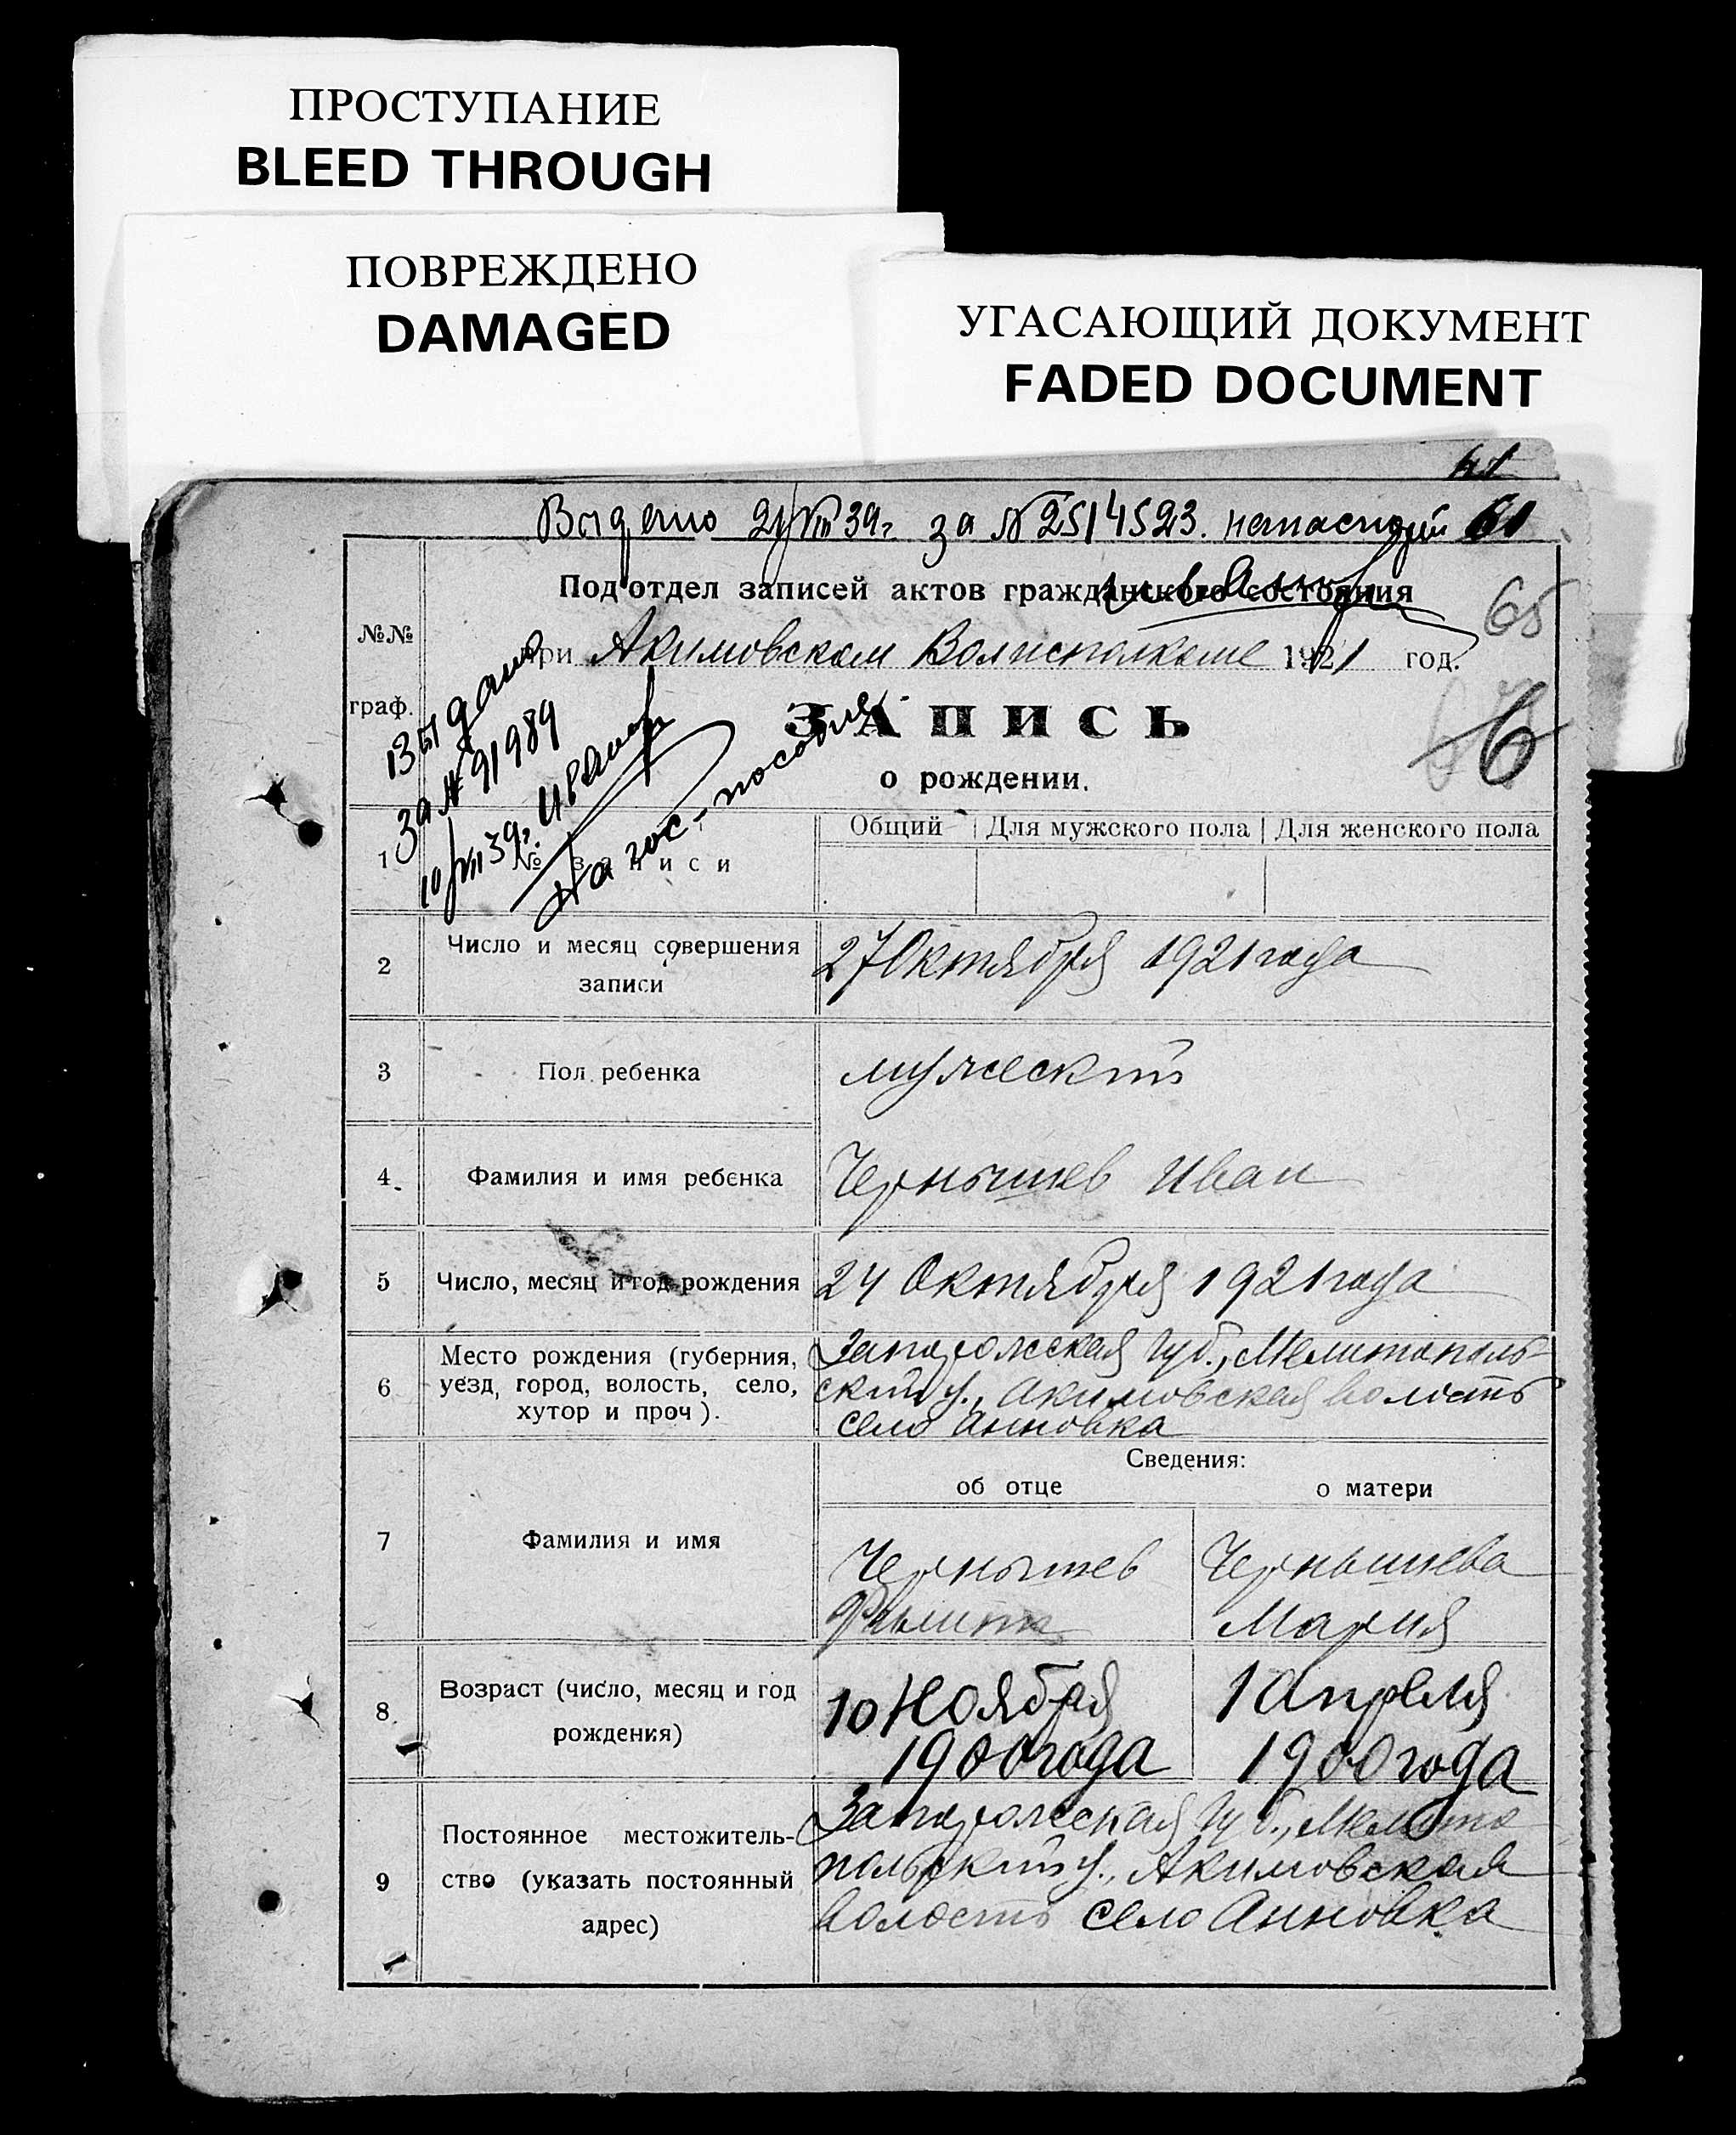 ПРОСТУПАНИЕ
BLEED THROUGH
ПОВРЕЖДЕНО
DAMAGED
УГАСАЮЩИЙ ДОКУМЕНТ
FADED DOCUMENT
61
Выдано 21/VIII 39г. за № 2514523. на паспорт 61
Иванов
Под'отдел записей актов гражданского состояния
65
при Акимовском Волисполкоме 1921 год.
№№
граф.
Выдано
за № 91989
10/VIII 39г. Иванов
На гос-пособие
ЗАПИСЬ
6
о рождении.
1
№ записи
Общий
Для мужского пола
Для женского пола
2
Число и месяц совершения
записи
27 Октября 1921 года
3
Пол ребенка
мужеский
4
Фамилия и имя ребенка
Чернышев Иван
5
Число, месяц и год рождения
24 Октября 1921 года
6
Место рождения (губерния,
уезд, город, волость, село,
хутор и проч).
Запорожская губ., Мелитополь-
ский у., Акимовская волость
село Анновка
Сведения:
об отце
о матери
7
Фамилия и имя
Чернышев
Филипп
Чернышева
Мария
8
Возраст (число, месяц и год
рождения)
10 Ноября
1900 года
1 апреля
1900 года
9
Постоянное местожитель-
ство (указать постоянный
адрес)
Запорожская губ., Мелито
польский у., Акимовская
волость село Анновка